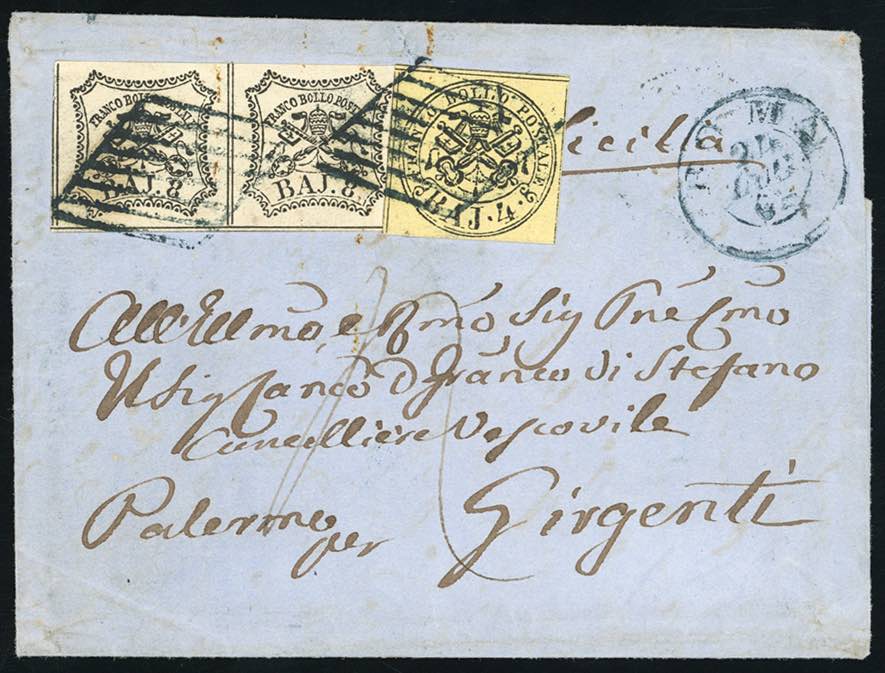 FRANCO BOLLO POSTALE
BAJ. 8
FRANCO BOLLO POSTALE
BAJ. 8
FRANCO BOLLO POSTALE
BAJ. 4
Sicilia
ROMA
All'Illmo e Rmo Sig Pne Cmo
Il Sig Canco D Franco Di Stefano
Cancelliere Vescovile
Palermo per Girgenti